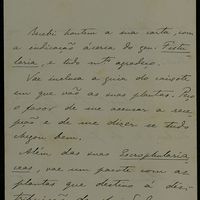 Recebi hontem a sua carta, com
a indicação ácerca do gen. Fistu-
laria, e tudo mto agradeço.
Vae inclusa a guia do caixote
em que vão as suas plantas. Peço
o favor de me accusar a rece-
pção e de me dizer se tudo
chegou bem.
Além das suas Escrophularia-
ceas, vae um pacote com as
plantas que destino á dis-